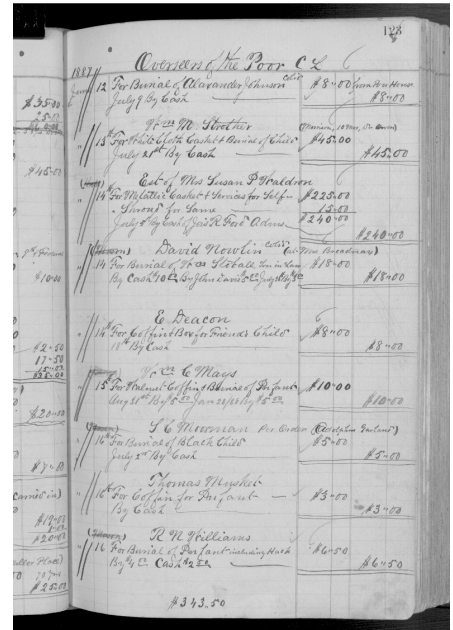 123
Overseers of the Poor
1887
June 12 For Burial of Alexander Johnson Cold $8.00 from Poor House
July 9 By Cash $8.00
Wm M. Strother
13th For White Cloth Casket & Burial of Child $45.00
July 21st By Cash $45.00
Est of Mrs Susan P Waldron
14th For Metallic Casket & Services for Self $225.00
" Shroud for Same 15.00
$240.00
July By Cash R Ford Admr
$240.00
David Nowlin Cold
14 For Burial of Wm Stovall Son in Law $18.00
By Cash 10
$18.00
E Deacon
14th For Coffin & Box for Friend's Child $8.00
18th By Cash $8.00
Wm C Mays
15 For Walnut Coffin & Burial of Infant $10.00
Aug 31st By $5.00 Jan By $5.00 $10.00
S C Moorman Per Order (Adolphus Garland)
16th For Burial of Black Child $5.00
July 2nd By Cash $5.00
Thomas Musket
16th For Coffin for Infant $3.00
By Cash $3.00
R N Williams
16 For Burial of Infant including Hack $6.50
By 4.00 Cash $2.50 $6.50
$343.50
$35.00
25.00
$45.00
$10.00
$2.50
17.50
15.00
$35.00
$20.00
Carried in)
$19.00
1.00
$20.00
$25.00